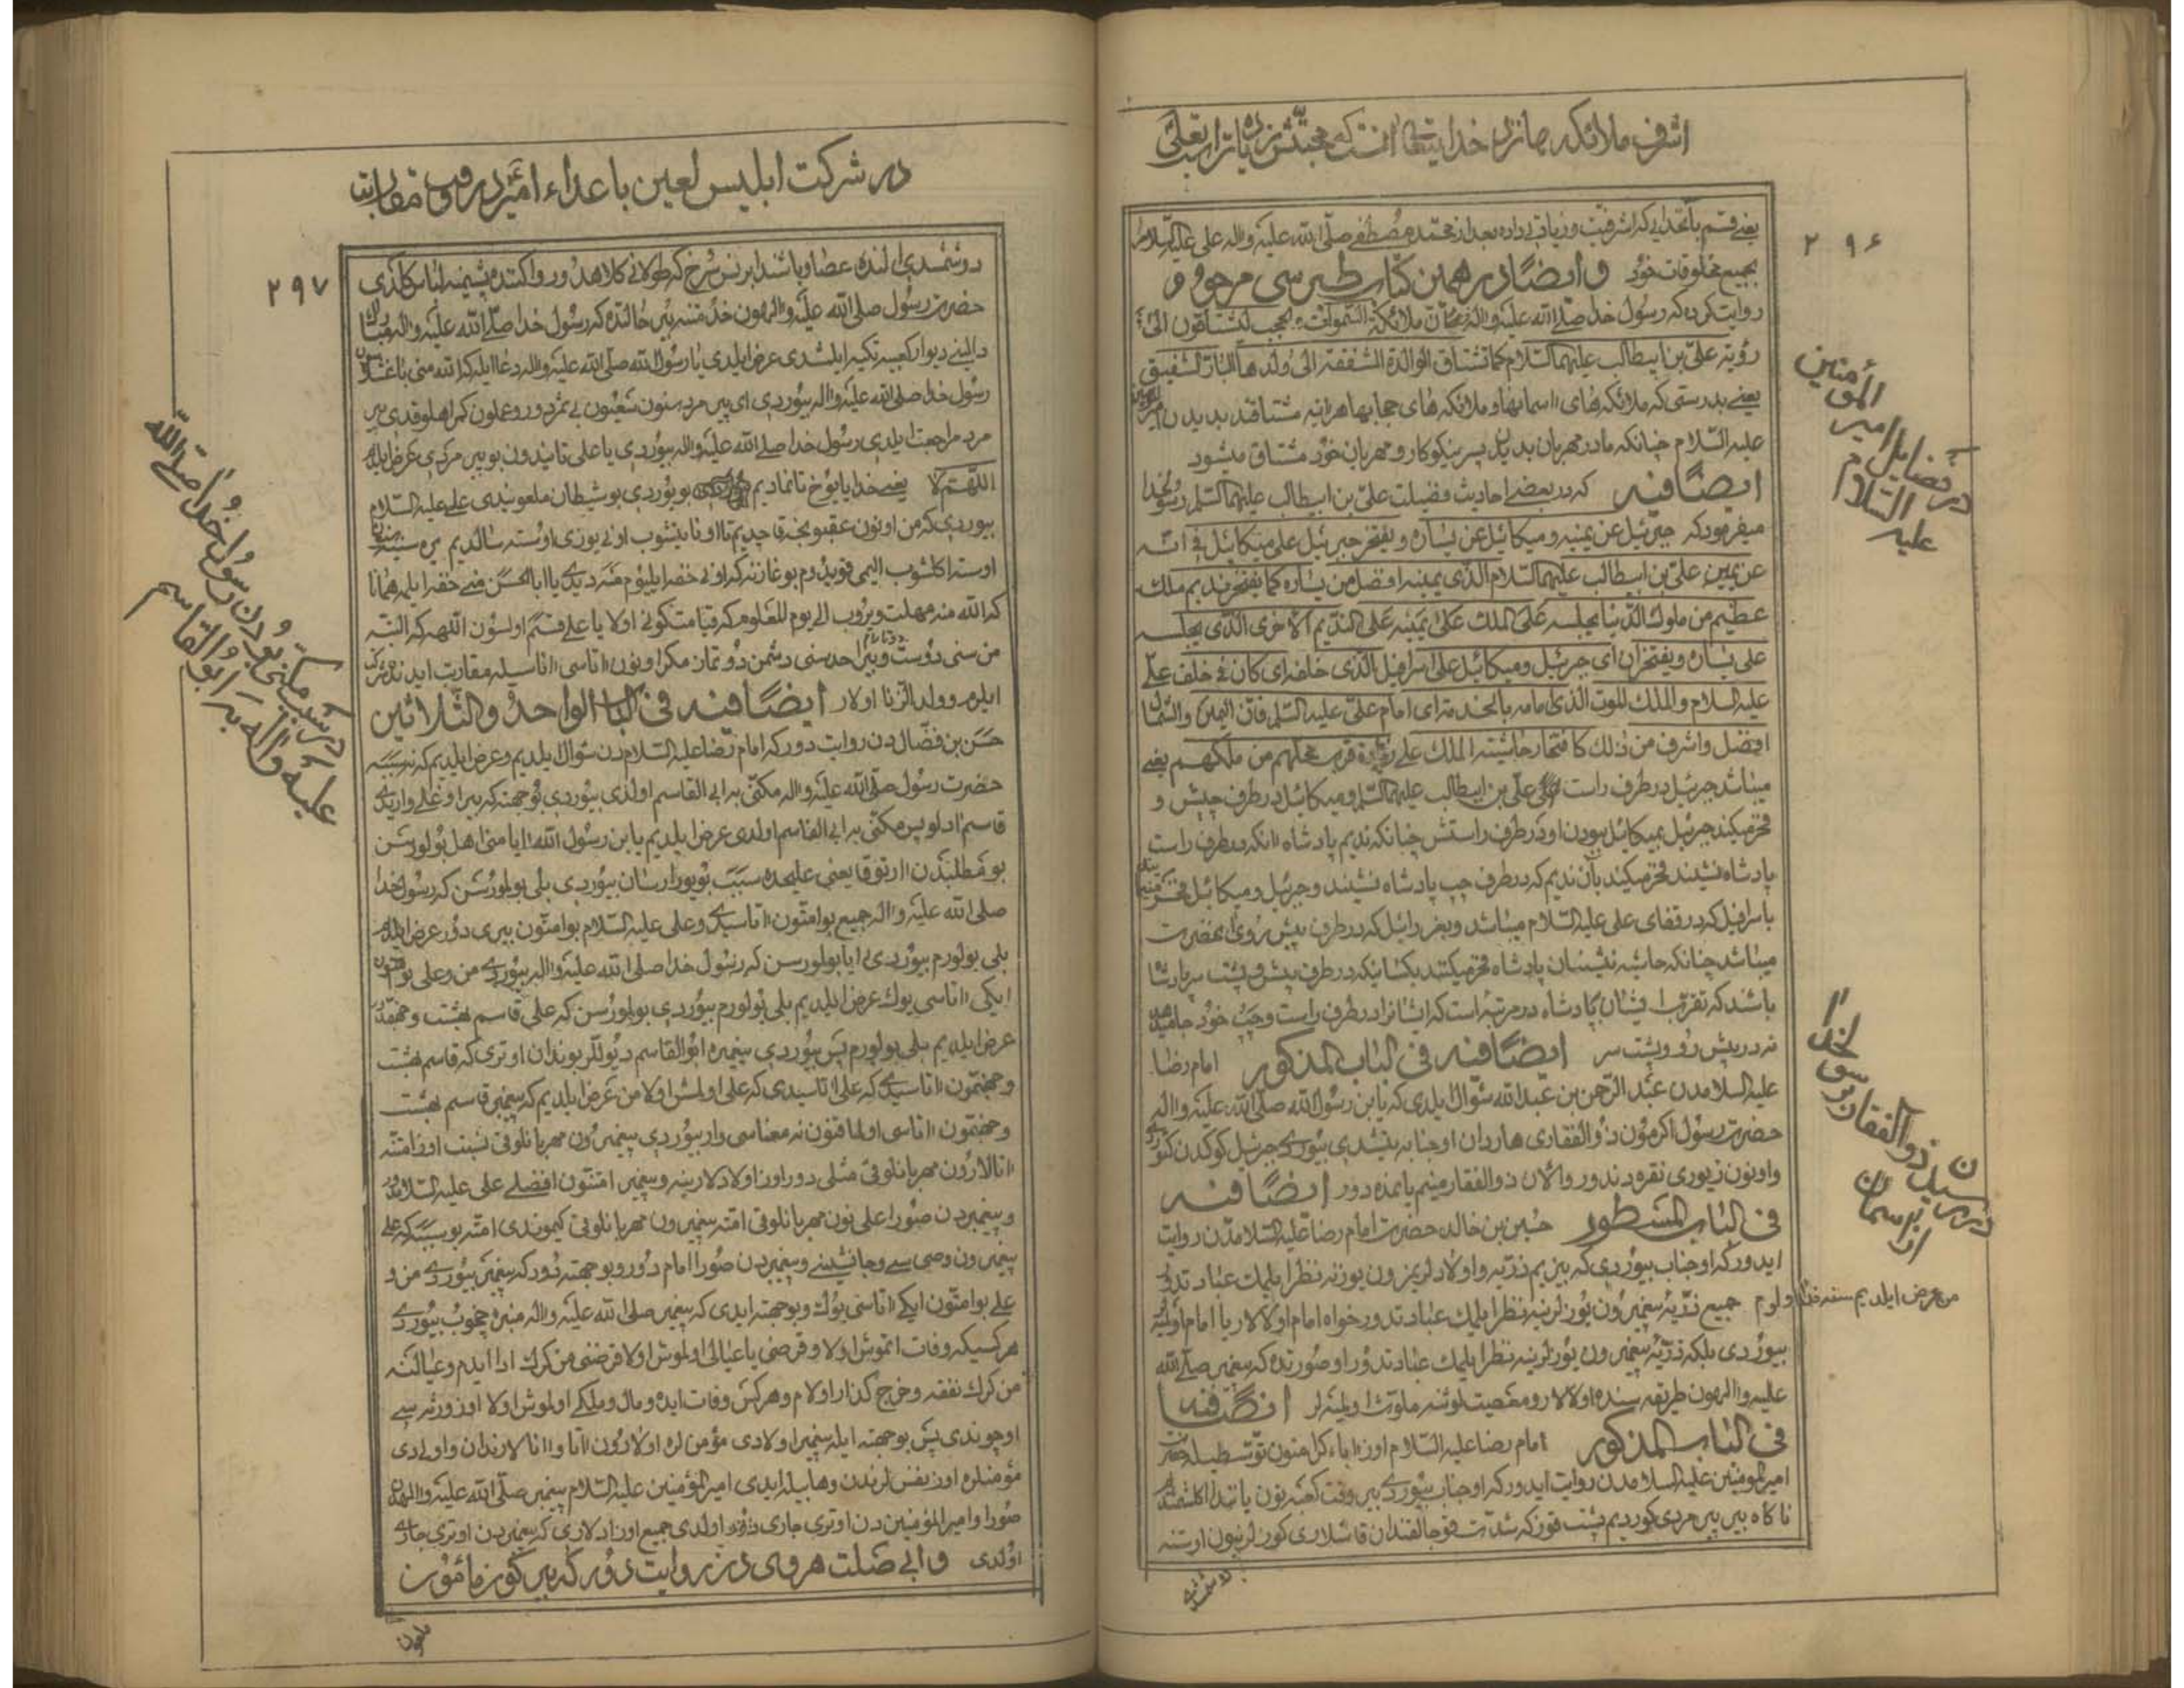 اشرف ملائکه
۲۹۶
یعنی قسم بآنخدایی که اشرفیت و زیادتی داده بعد از محمّد مصطفی صلّی الله علیه و اله علی علیه السلام
بجمیع مخلوقات خود و ایضًا در همین کتاب طبرسی مرحوم
روایت کرده که رسول خدا صلی الله علیه و اله ملائکة السموات و الحجب لیشتاقون الی
رؤیة علیّ بن ابیطالب علیهما السلام کما تشتاق الوالدة الشفقة الی ولدها البارّ الشفیق
یعنی بدرستی که ملائکه های اسمانها و ملائکه های حجابها هر اینه مشتاقند بدیدن
علیه السلام چنانکه مادر مهربان بدیدن پسر نیکوکار و مهربان خود مشتاق میشود
ایضًا فیه که در بعضی احادیث فضیلت علیّ بن ابیطالب علیهما السلم رسولخدا
میفرمود که جبرئیل عن یمینه و میکائیل عن یساره و یفتخر جبرئیل علی میکائیل فی انّه
عن یمین علیّ بن ابیطالب علیهما السلام الّذی یمینه افضل من یساره کما یفتخر ندیم ملک
عظیم من ملوک الدّنیا یجلسه عَلَی الملک عَلی یمینه عَلَی النّدیم الاخری الّذی یجلسه
علی یساره و یفتخران ای جبرئیل و میکائیل علی اسرافیل الّذی خلفه ای کان فی خلف علی
علیه السلام و الملک الموت الذی امامه بالخدمة ای امام علیّ علیه السلم فان الیمین و الشمال
افضل و اشرف من ذلک کافتخار حاشیة الملک علی زیادة قرب محلهم من ملکهم یعنی
میباشد جبرئیل در طرف راست علی بن ابیطالب علیهما السلم و میکائیل در طرف چپش و
فخر میکند جبرئیل بمیکائیل ببودن او در طرف راستش چنانکه ندیم پادشاه انکه در طرف راست
پادشاه نشیند فخر میکند بآن ندیم که در طرف چپ پادشاه نشیند و جبرئیل و میکائیل فخر
باسرافیل که در قفای علی علیه السلام میباشد و بعزرائیل که در طرف پیش روی انحضرت
میباشد چنانکه حاشیه نشینان پادشاه فخر میکنند بکسانیکه در طرف پیش و پشت سر پادشاه
باشند که تقرّب ایشان پادشاه در مرتبه است که ایشانرا در طرف راست و چپ خود جا میدهد
نه در پیش رو و پشت سر ایضًا فیه فی الباب المذکور امام رضا
علیه السلامدن عبد الرّحمن بن عبد الله سؤال ایلدی که یابن رسول الله صلّی الله علیه و اله
حضرت رسول اکرمون ذوالفقاری هاردان او جنابه یتشدی بیوردی جبرئیل گوگدن
و اونون زیوری نقره دندور و الان ذوالفقار منیم یانمده دور ایضًا فیه
فی الباب المسطور حسین بن خالد حضرت امام رضا علیه السلامدن روایت
ایدور که او جناب بیوردی که بیزیم ذرّیه و اولادلریزون یوزنه نظر ایلمک عبادتدور
من عرض ایلدیم سنه فدا اولوم جمیع ذرّیه پیغمبرون یوزلرینه نظر ایلمک عبادتدور خواه امام اولالار یا امام اولمیه
بیوردی بلکه ذرّیه پیغمبرون یوزلرینه نظر ایلمک عبادتدور او صورتده که پیغمبر صلّی الله
علیه و الهون طریقه سنده اولالار و معصیتلرنه ملوّث اولمیه لر ایضًا فیه
فی الباب المذکور امام رضا علیه السلام اوز اباء کرامنون توسّطیله حضرت
امیر المومنین علیه السلامدن روایت ایدور که او جناب بیوردی بیر وقت کعبه نون یانندا
ناگاه بیر پیر مردی گوردیم پشت قوز که شدّت قوجالقندان قاشلاری گوزلرینون اوستنه
در فضایل امیر المؤمنین علیه السلام
در رسیدن ذوالفقار برسولخدا از اسمان
در شرکت ابلیس لعین با اعداء امیر در وقت مقاربت
۲۹۷
دوشمشدی النده عصا و باشندا برنس سرخ که طولانی کلاهدور و اکننده پشمینه لباس گلدی
حضرت رسول صلی الله علیه و الهون خدمتنه بیر حالتده که رسول خدا صلّی الله علیه و اله مبارک
دالینی دیوار کعبیه تکیه ایلمشدی عرض ایلدی یا رسول الله صلّی الله علیه و اله دعا ایله که الله منی باغشلاسون
رسول خدا صلی الله علیه و اله بیوردی ای پیر مرد سنون سعیون بی ثمر دور و عملون گمراهلوقدی بیر
مرد مراجعت ایلدی رسول خدا صلی الله علیه و اله بیوردی یا علی تانیدون بو پیر مردی عرض ایلدی
اللّهمّ لا یعنی خدایا یوخ تانمادیم بیوردی بو شیطان ملعونیدی علی علیه السلام
بیوردی که من اونون عقبونجه قاچدیم تا اونا یتشوب اونی یوزی اوسته سالدیم
اوسته اگلشوب الیمی قویدوم بوغازنه که اونی خفه ایلیوم منه دیدی یا ابا الحسن منی خفه ایلمه همانا
که الله منه مهلت ویروب الی یوم المعلوم که قیامت گونی اولا یا علی قسم اولسون اللهه که البتّه
من سنی دوست و بیر احد سنی دشمن دوتماز مگر اونون اناسی اناسیله مقاربت ایدنده شرکت
ایلرم و ولد الزّنا اولار ایضًا فیه فی الباب الواحد و الثلاثین
حسن بن فضّال دن روایت دور که امام رضا علیه السلامدن سؤال ایلدیم و عرض ایلدیم که نه سببه
حضرت رسول صلّی الله علیه و اله مکنّی به ابی القاسم اولدی بیوردی بو جهته که بیر اوغلی واریدی
قاسم ادلو پس مکنّی به ابی القاسم اولدی عرض ایلدیم یابن رسول الله ایا منی اهل بولورسن
بو مطلبدن ارتوقا یعنی علیحده سبب بویورارسان بیوردی بلی بولورسن که رسولخدا
صلی الله علیه و اله جمیع بو امتون اتاسیدی و علی علیه السلام بو امتون بیری دور عرض ایلدیم
بلی بولورم بیوردی ایا بولورسن که رسول خدا صلی الله علیه و اله بیوردی من و علی بو امتون
ایکی اتاسی یوک عرض ایلدیم بلی بولورم بیوردی بولورسن که علی قاسم بهشت و جهنّمدور
عرض ایلدیم بلی بولورم پس بیوردی پیغمبره ابو القاسم دیوللر بوندان اوتری که قاسم بهشت
و جهنّمون اتاسیدی که علی اتاسیدی که علی اولمش اولا من عرض ایلدیم که پیغمبر قاسم بهشت
و جهنّمون اتاسی اولماقنون نه معناسی وار بیوردی پیغمبرون مهربانلوقی نسبت اوز امتنه
اتالارون مهربانلوقی مثلی دور اوز اولادلارینه و پیغمبر امتنون افضلی علی علیه السلامدور
و پیغمبردن صورا علی نون مهربانلوقی امّته پیغمبرون مهربانلوقی کیموندی امّته بو سببه که علی
پیغمبرون وصی سی و جانشینی و پیغمبردن صورا امام دور و بو جهته دور که پیغمبر بیوردی من و
علی بو امتون ایکی اتاسی یوک و بو جهته ایدی که پیغمبر صلی الله علیه و اله منبره چخوب بیوردی
هر کسیکه وفات اتموش اولا و قرضی یا عیالی اولموش اولا قرضنی من گرک ادا ایدم و عیالنه
من گرک نفقه و خرج گذار اولام و هر کس وفات ایده و مال و ملکی اولموش اولا اوز ورثه سی
اوچوندی پس بو جهته ایله پیغمبر اولادی مؤمن لره اولارون اتا و انالارندان و اولدی
مؤمنلره اوز نفس لرندن و هابیله ایدی امیر المؤمنین علیه السلام پیغمبر صلّی الله علیه و الهدن
صورا و امیر المؤمنین دن اوتری جاری اولدی جمیع اوزادلاری که پیغمبردن اوتری جاری
اولدی و ابی صلت هروی دن روایت دور که بیر گون مامون
ملعون
در سبب مکنّی بودن رسول خدا صلّی الله علیه و اله به ابو القاسم